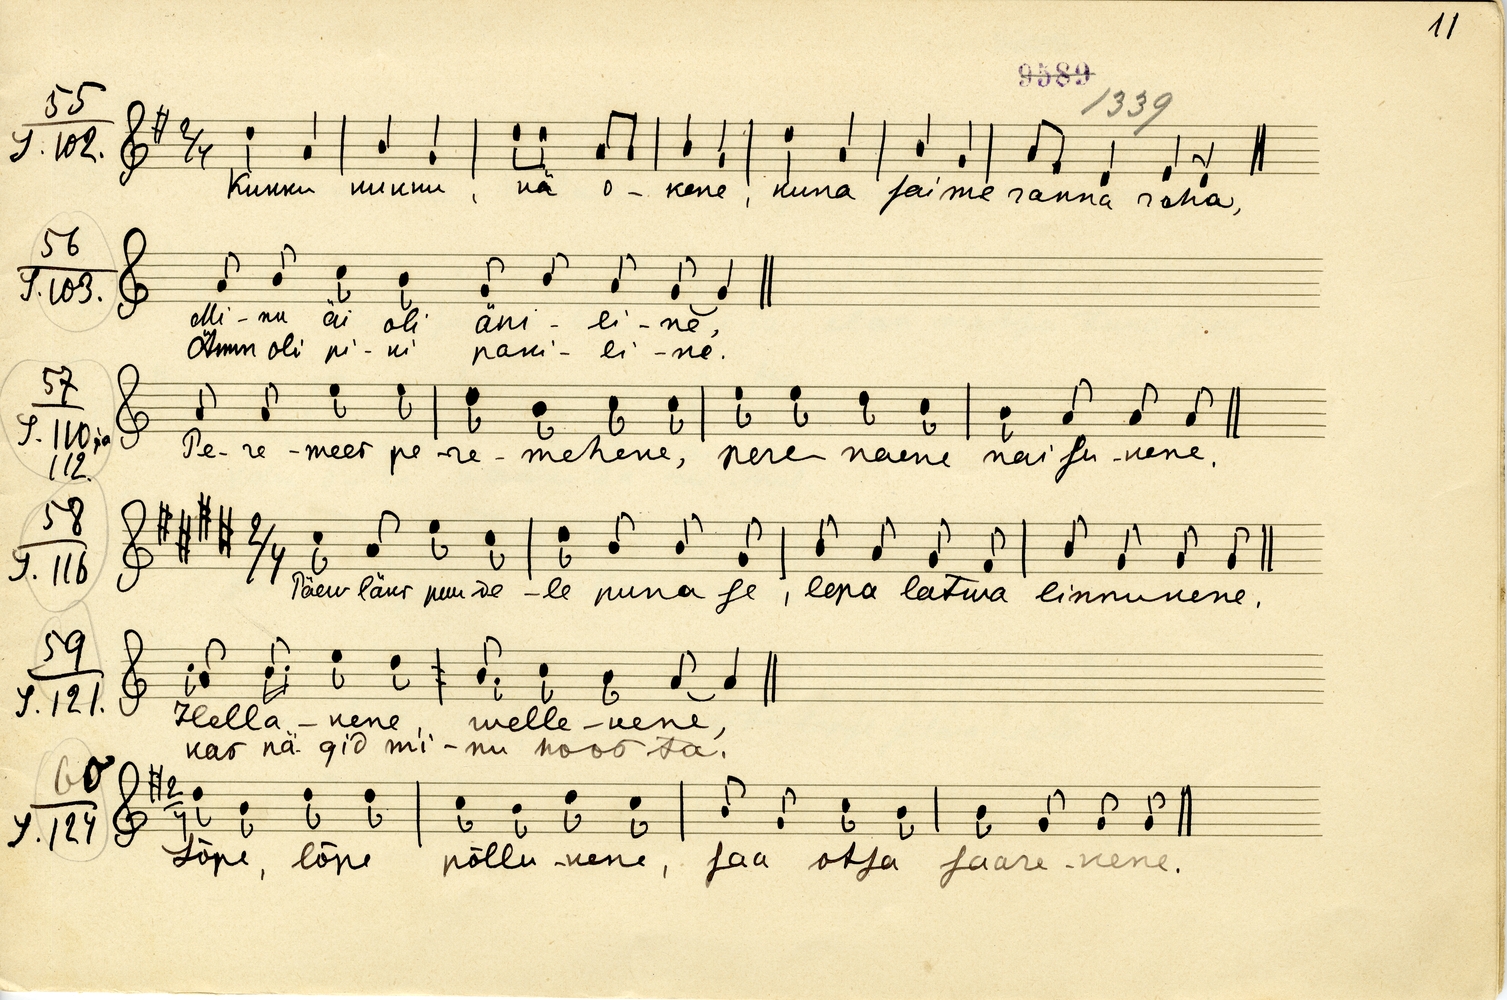 11
9589
1339
55
S. 102.
2/4
Kukku kukku, kä o - kene, kuna saime ranna raha,
56
S. 103.
Mi - nu äi oli äni - li - ne,
Ämm oli pi - ki paki - li - ne.
57
S. 110 ja
112.
Pe - re - mees pe - re - mehene, pere naene nai su - kene.
58
S. 116
2/4
Päew läks puu de - le puna se, lepa latwa linnukene.
59
S. 121.
Hella - kene, welle - kene,
kas nä - gid mi - nu noos ta.
60
S. 124
2/4
Lõpe, lõpe põllu - kene, saa otsa saare - kene.